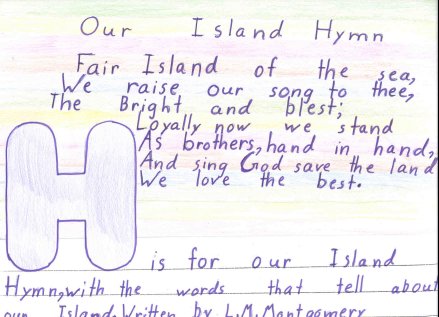 Our Island Hymn
Fair Island of the sea,
We raise our song to thee,
The Bright and blest;
Loyally now we stand
As brothers, hand in hand,
And sing God save the land
We love the best.
H
is for our Island
Hymn, with the words that tell about
our Island. Written by L.M. Montgomery